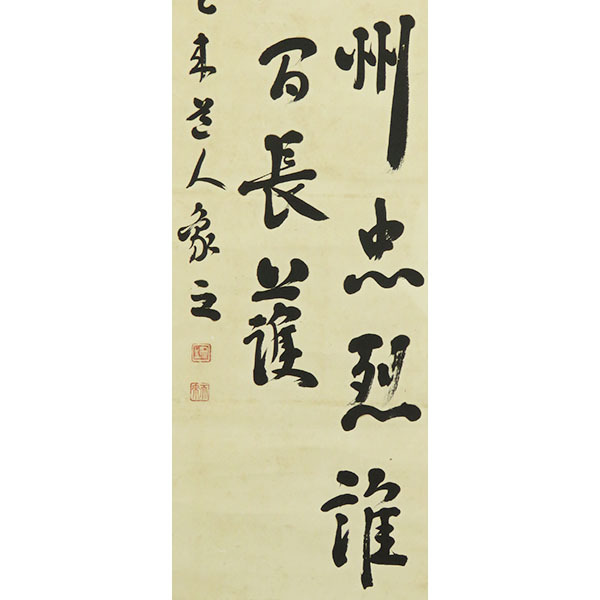 州忠烈誰
間長護
未道人象之